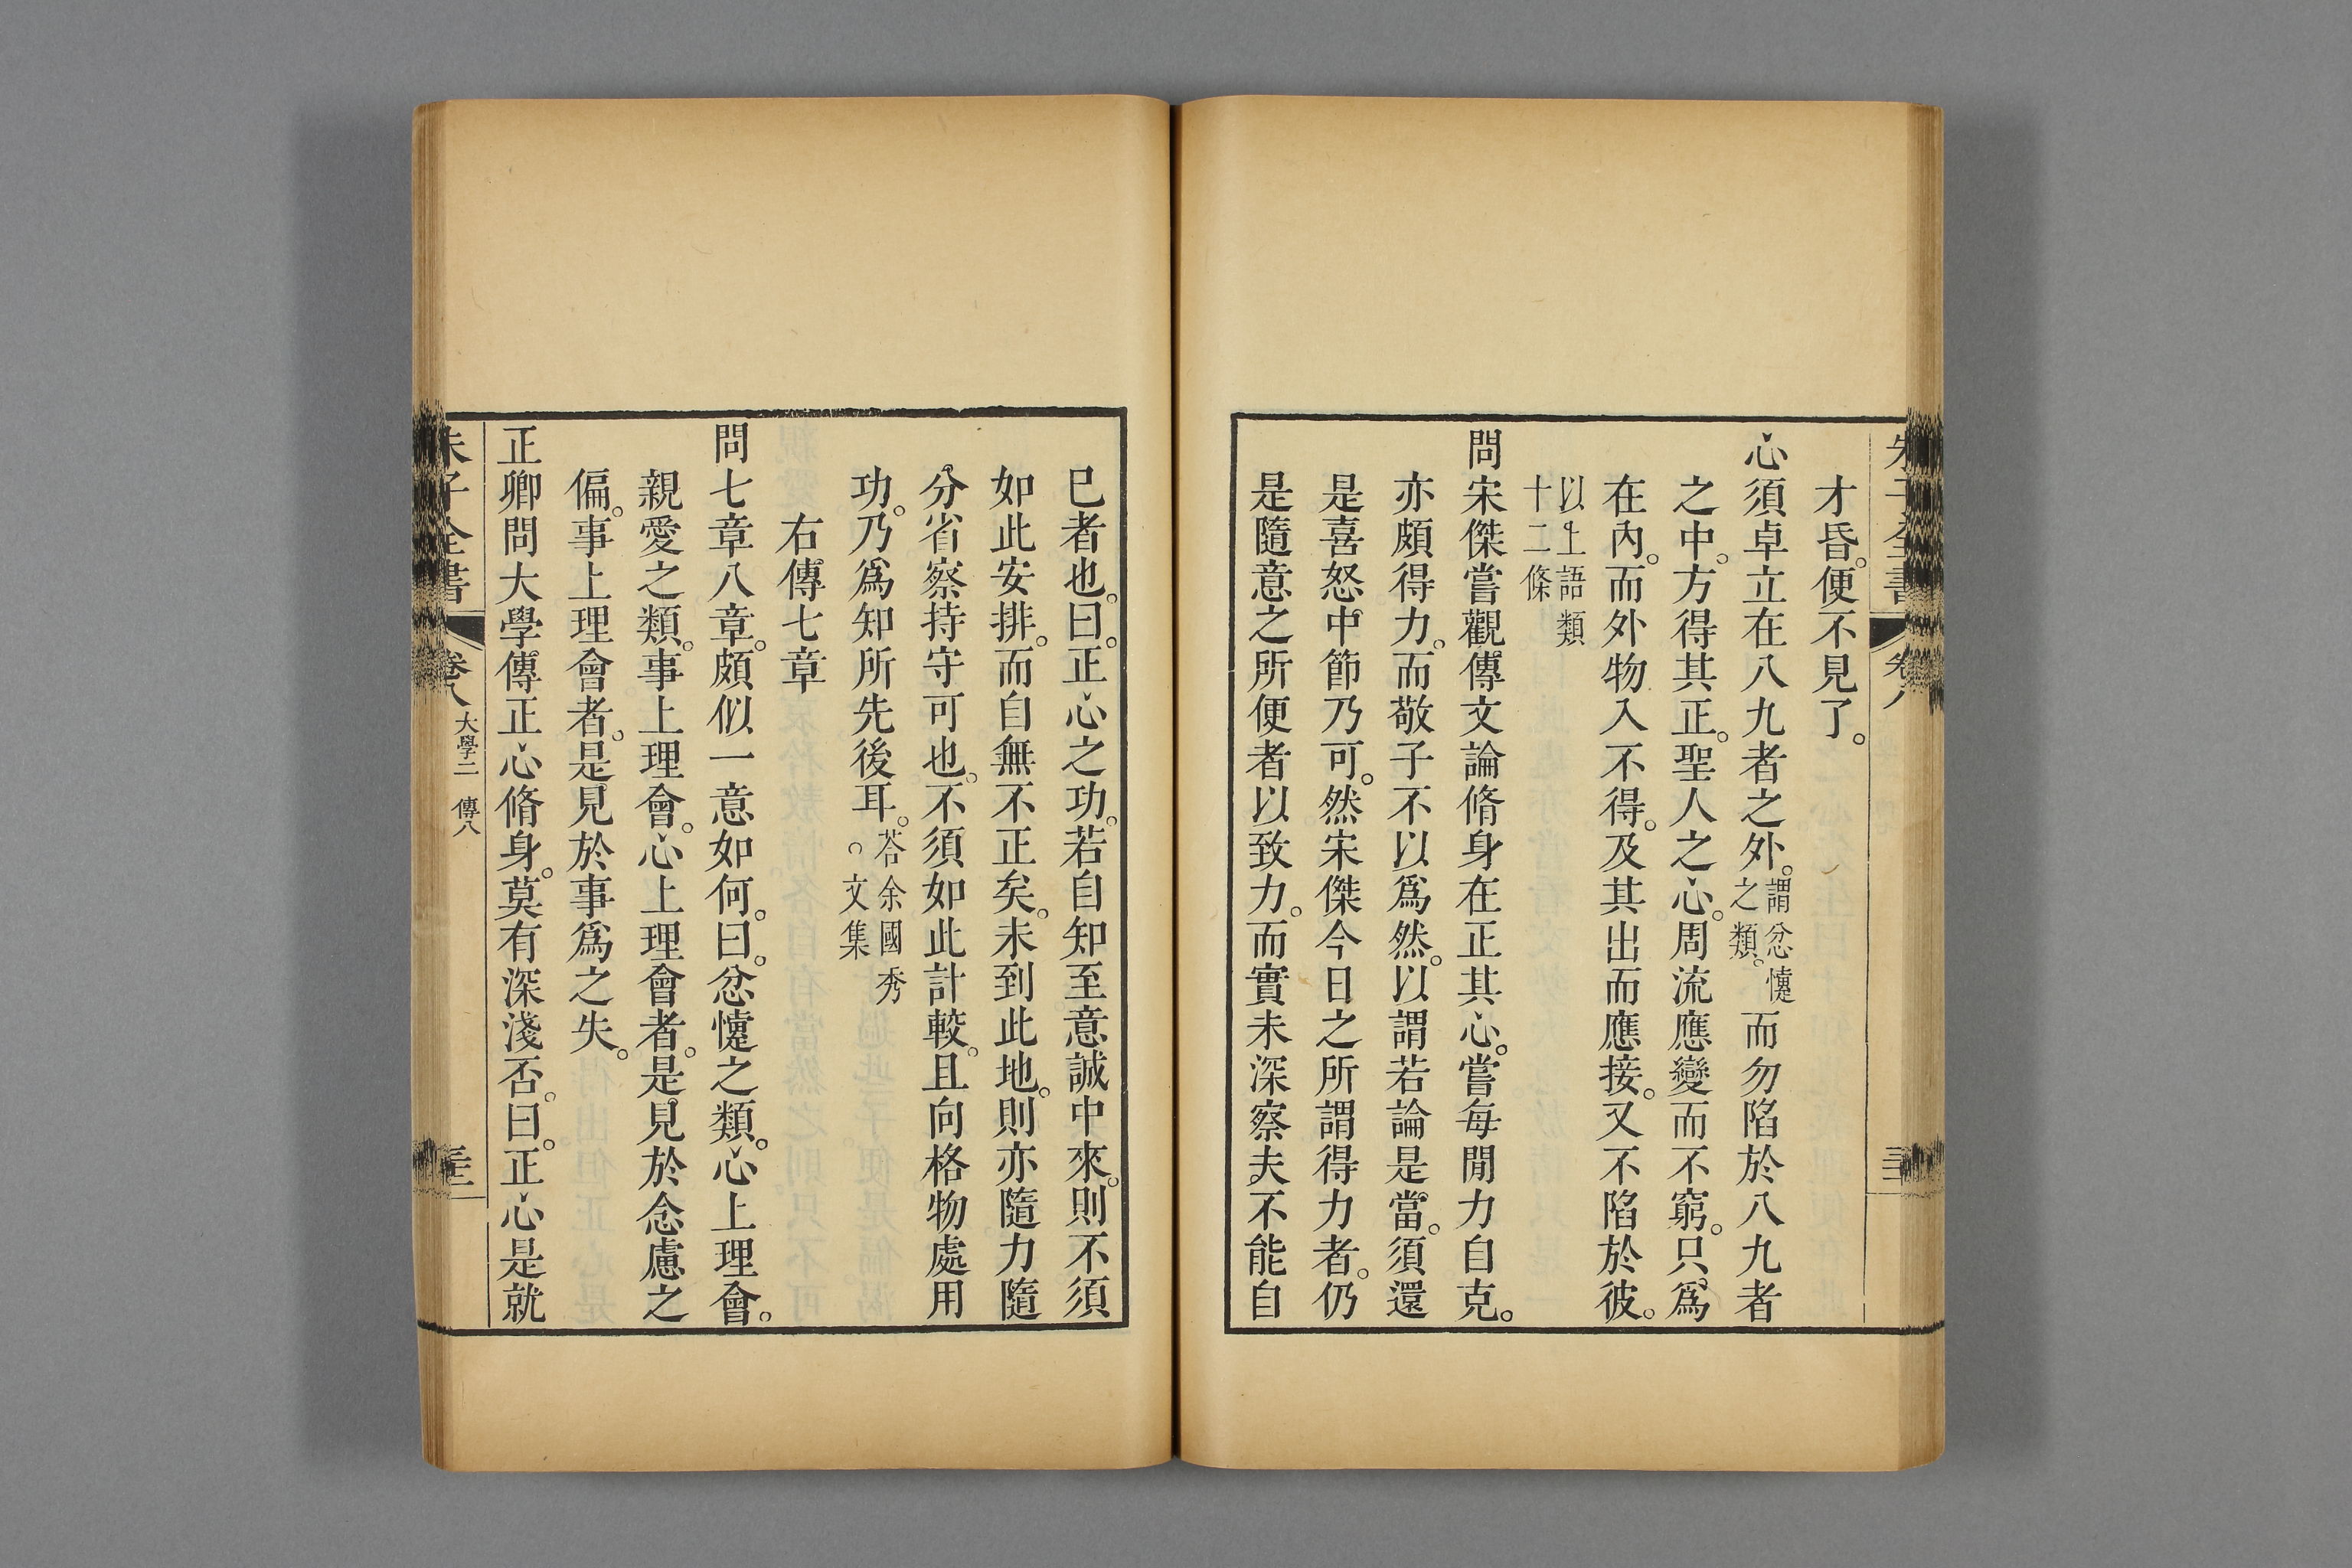 朱子全書 卷八
才昏。便不見了。
心須卓立在八九者之外。謂忿懥之類。而勿陷於八九者
之中。方得其正。聖人之心。周流應變而不窮。只爲
在內。而外物入不得。及其出而應接。又不陷於彼。
以上語類
十二條
問宋傑嘗觀傳文論脩身在正其心。嘗每閒力自克。
亦頗得力。而敬子不以爲然。以謂若論是當。須還
是喜怒中節乃可。然宋傑今日之所謂得力者。仍
是隨意之所便者以致力。而實未深察夫不能自
已者也。曰。正心之功。若自知至意誠中來。則不須
如此安排。而自無不正矣。未到此地。則亦隨力隨
分省察持守可也。不須如此計較。且向格物處用
功。乃爲知所先後耳。荅余國秀。文集
右傳七章
問七章八章。頗似一意如何。曰。忿懥之類。心上理會。
親愛之類。事上理會。心上理會者。是見於念慮之
偏。事上理會者。是見於事爲之失。
正卿問大學傳正心脩身。莫有深淺否。曰。正心是就
朱子全書 卷八 大學二 傳八